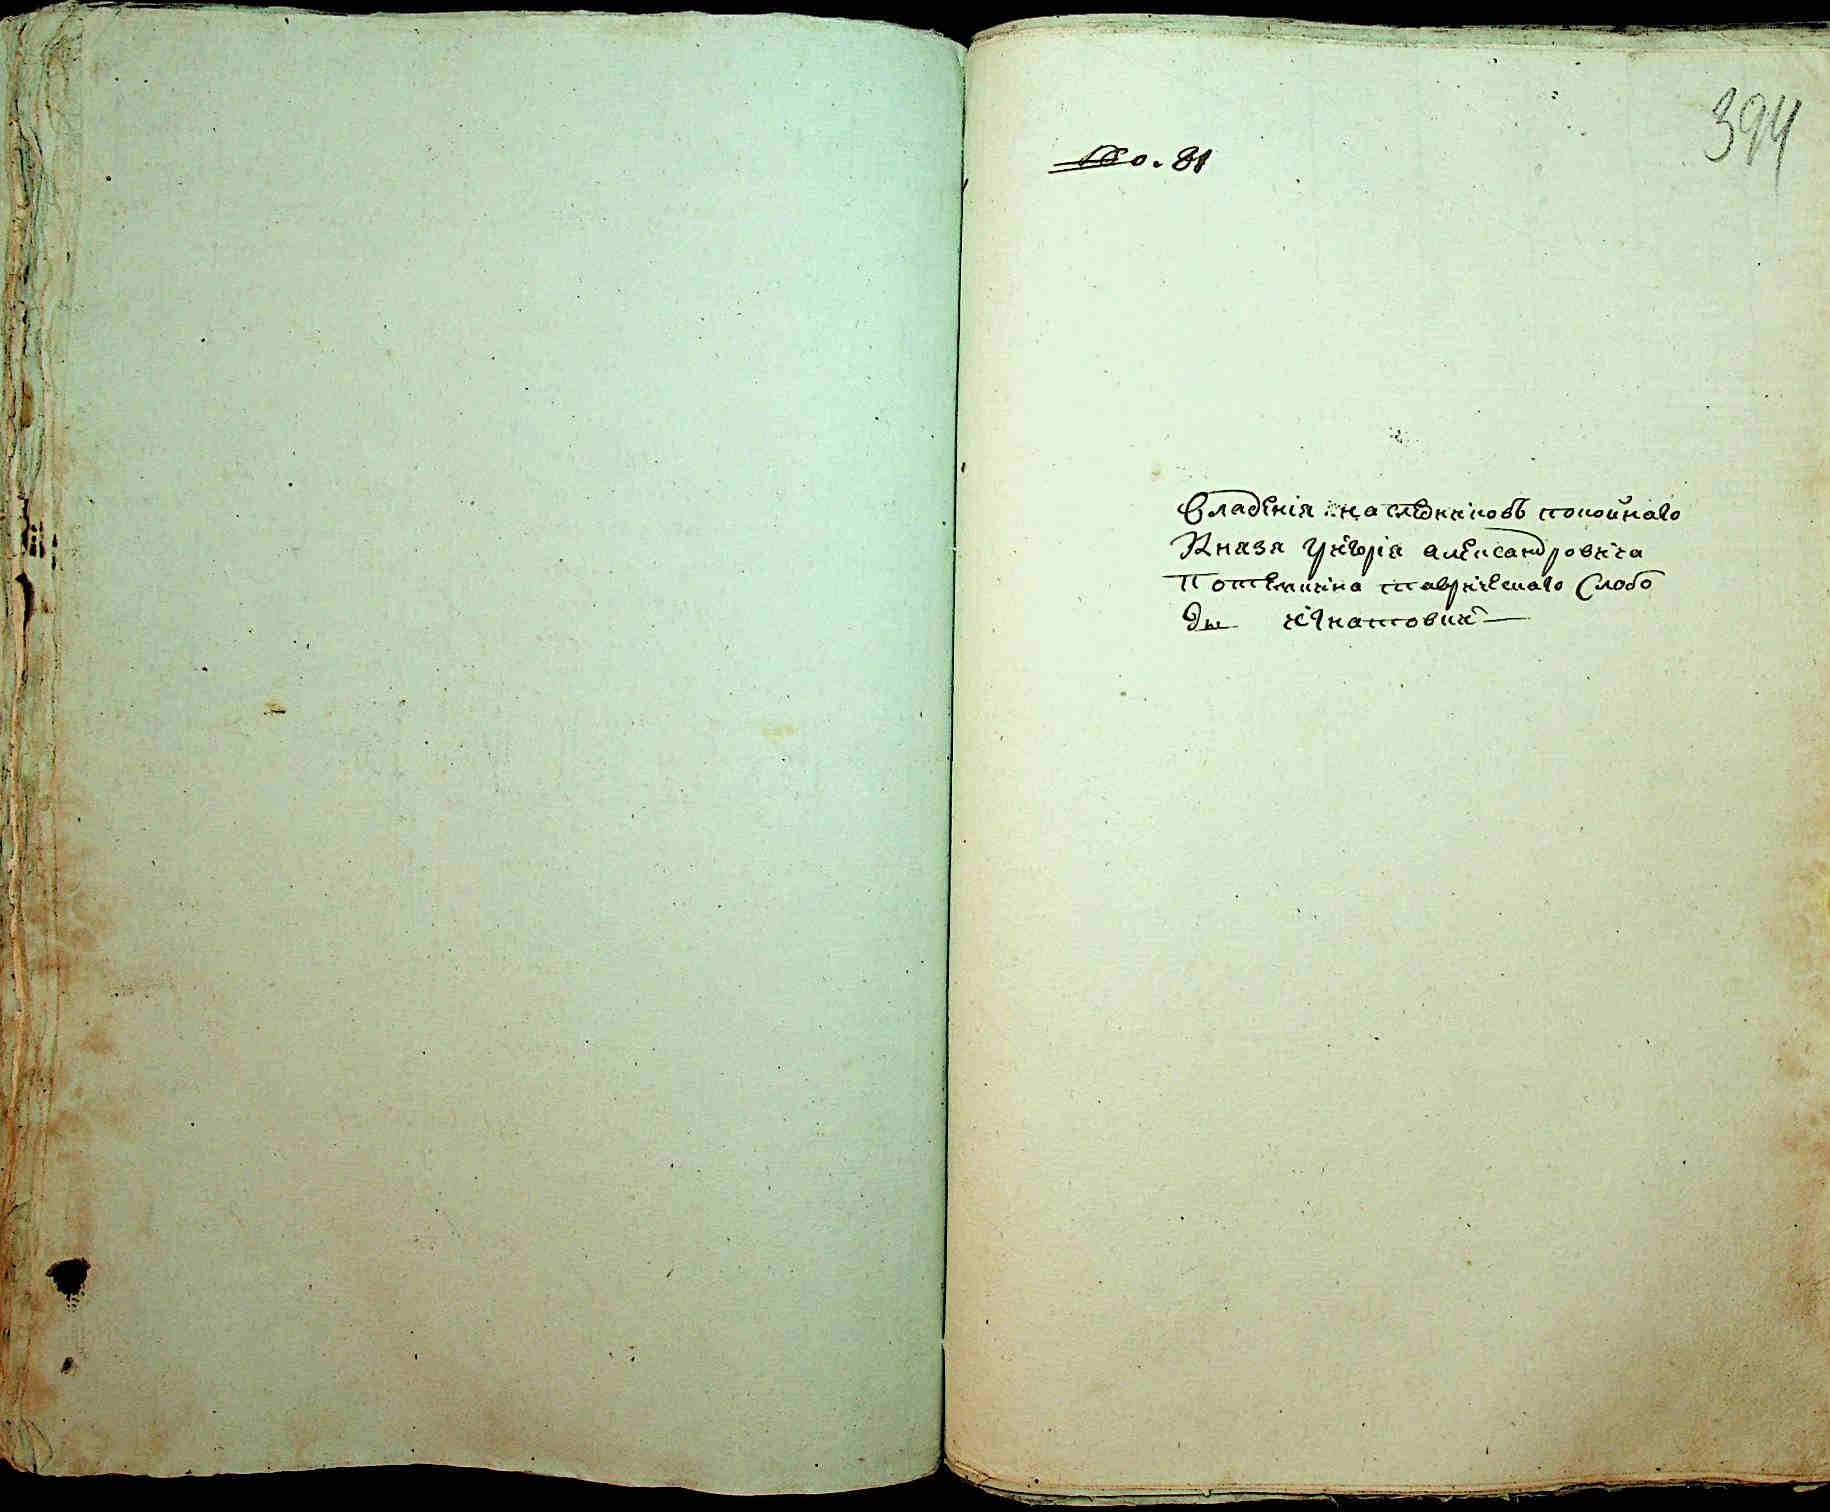 394
No. 81
Владения наследниковъ покойнаго
Князя Григорiя александровича
Потемкина таврическаго Слобо
ды Игнатовки